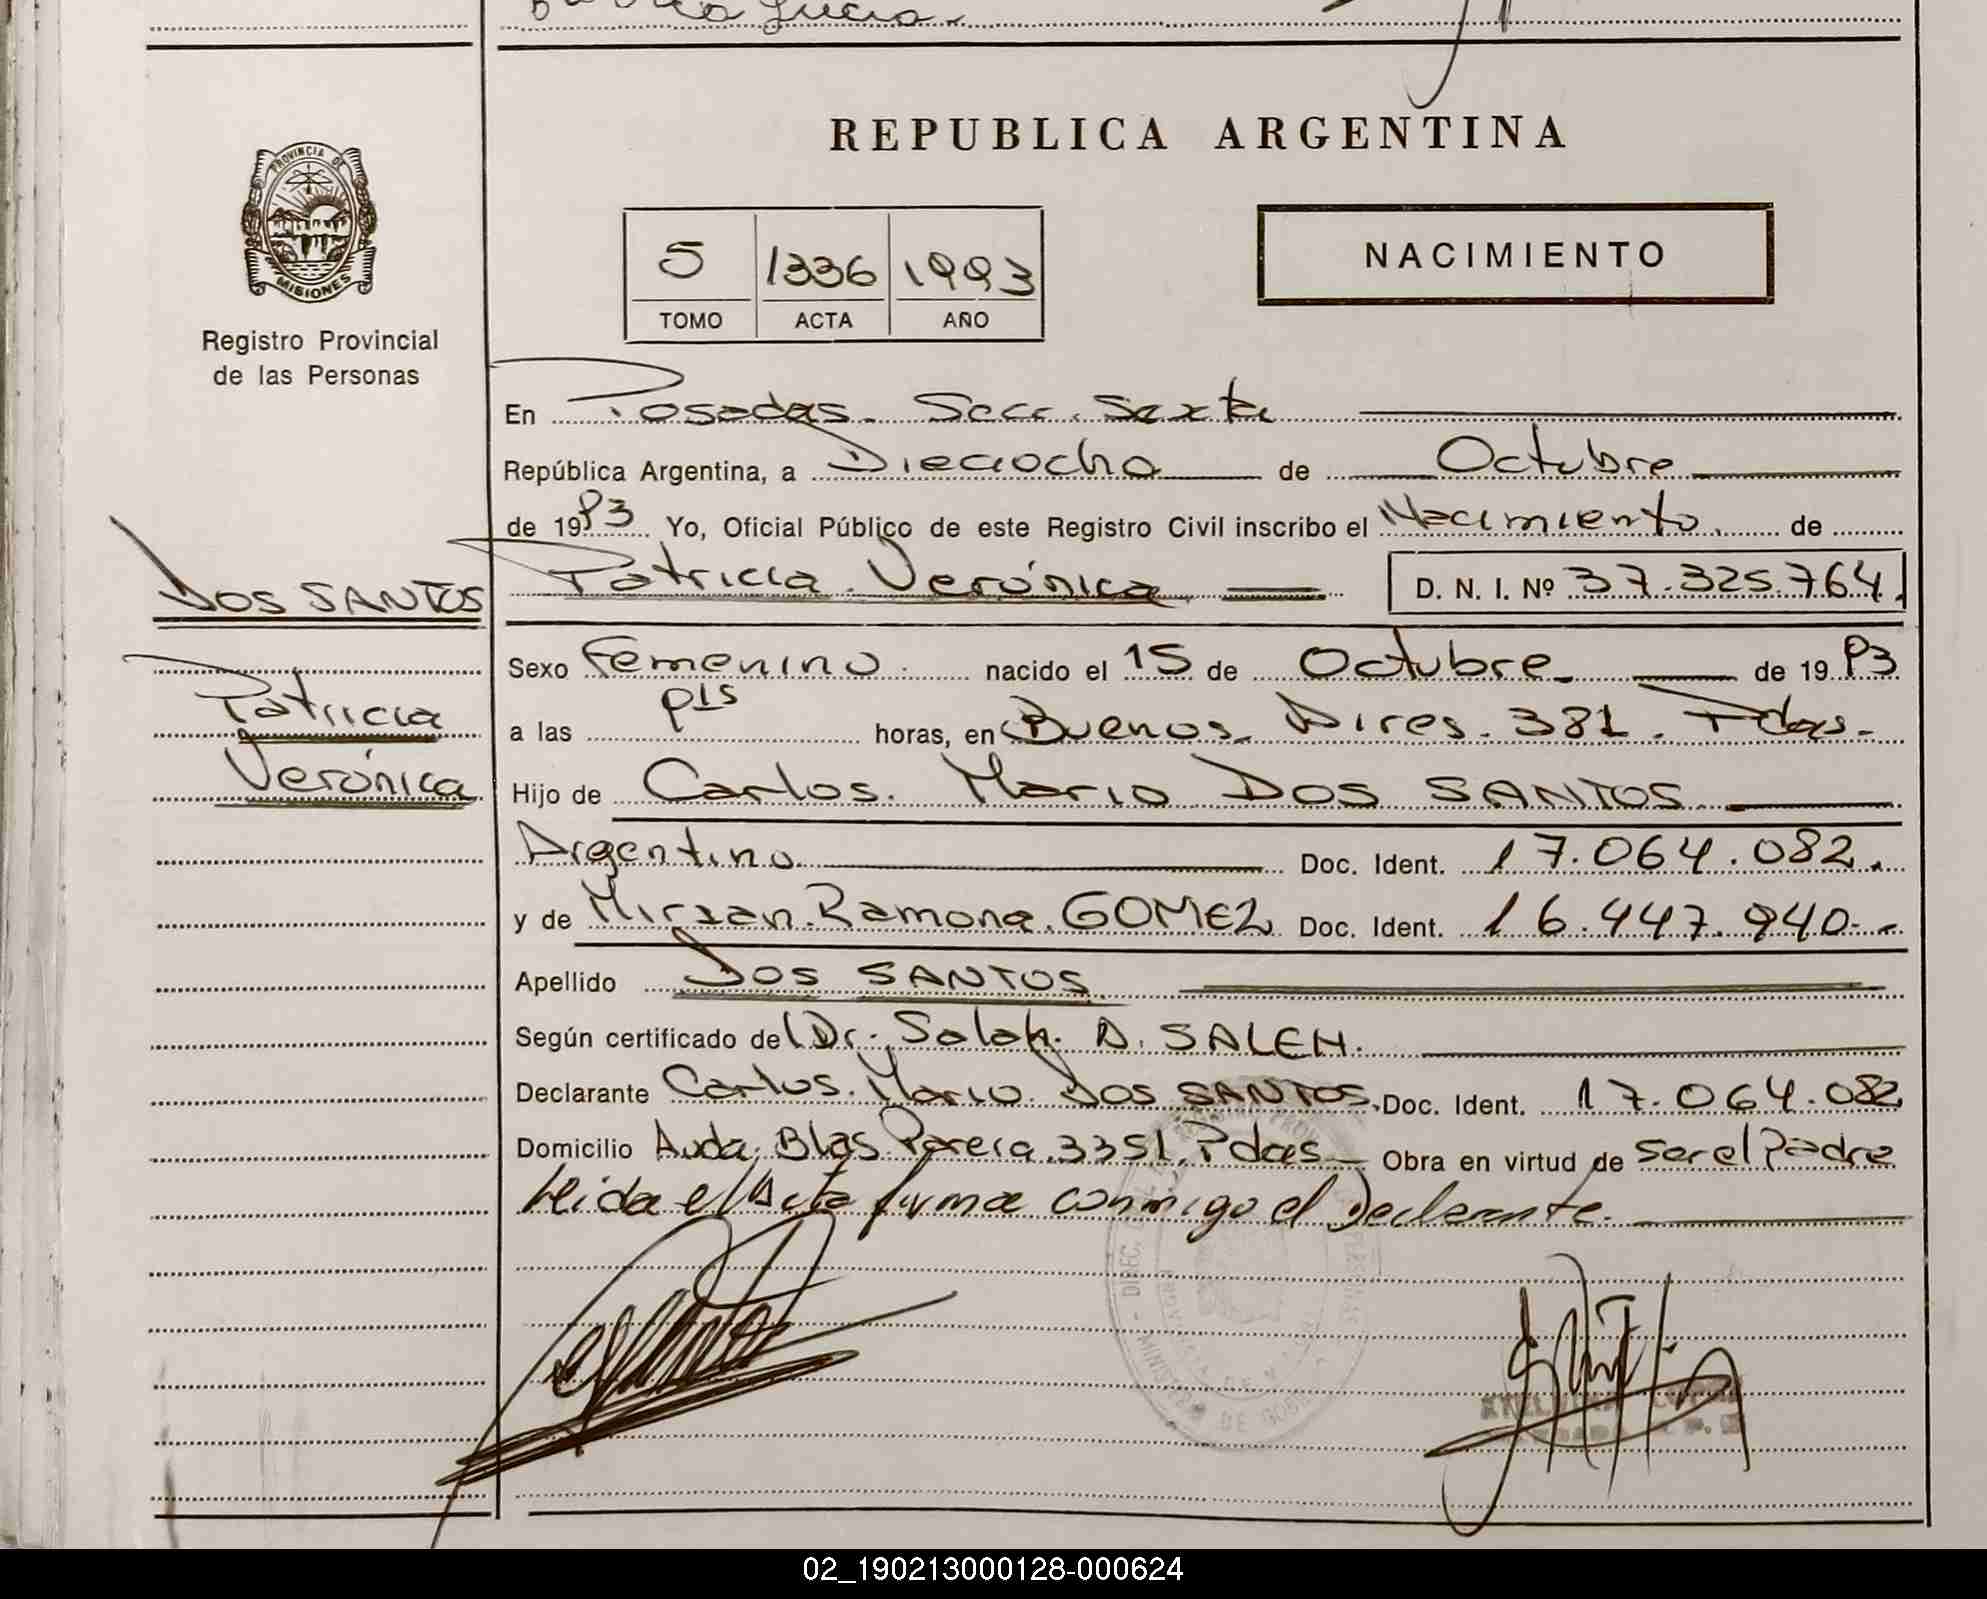 Lucia.
REPUBLICA ARGENTINA
PROVINCIA DE
MISIONES
Registro Provincial
de las Personas
5 1336 1993
TOMO ACTA AÑO
NACIMIENTO
En Posadas. Secc. Sexta
República Argentina, a Dieciocho de Octubre
de 1993. Yo, Oficial Público de este Registro Civil inscribo el Nacimiento de
DOS SANTOS
Patricia
Verónica
Patricia Verónica D. N. I. Nº 37.325.764.
Sexo Femenino. nacido el 15 de Octubre de 1993
a las horas, en Buenos Aires. 381. Pdas.
Hijo de Carlos. Mario DOS SANTOS
Argentino Doc. Ident. 17.064.082.
y de Ramona. GOMEZ Doc. Ident. 16.447.940.
Apellido DOS SANTOS
Según certificado de Dr. Salah. A. SALEH.
Declarante Carlos. Mario DOS SANTOS. Doc. Ident. 17.064.082
Domicilio Avda. Blas Parera. 3351. Pdas. Obra en virtud de ser el Padre
leida el Acta firma conmigo el Declarante.
02_190213000128-000624